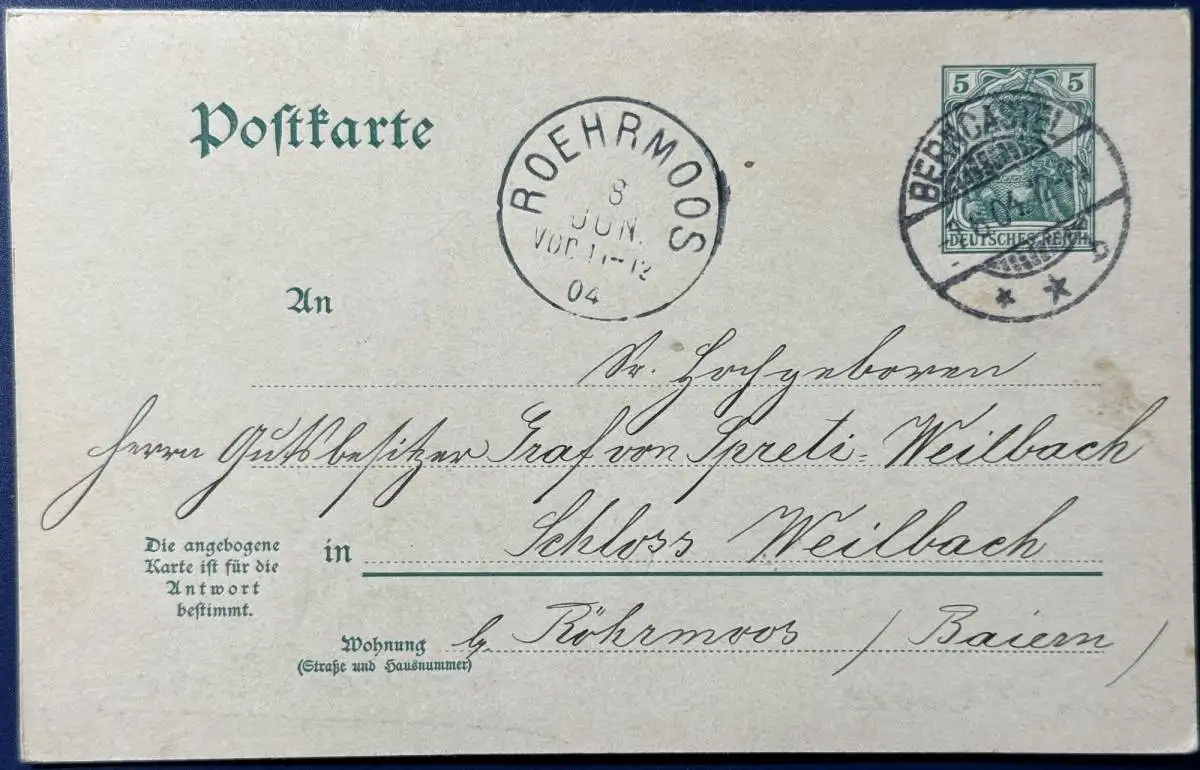 Postkarte
ROEHRMOOS
8
JUN.
VOR.11-12
04
5 5
BERNCASTEL
DEUTSCHES REICH
An
Sr. Hochgeboren
Herrn Gutsbesitzer Graf von Spreti-Weilbach
Die angebogene
Karte ist für die
Antwort
bestimmt.
in Schloss Weilbach
Wohnung b/ Röhrmoos (Baiern)
(Straße und Hausnummer)